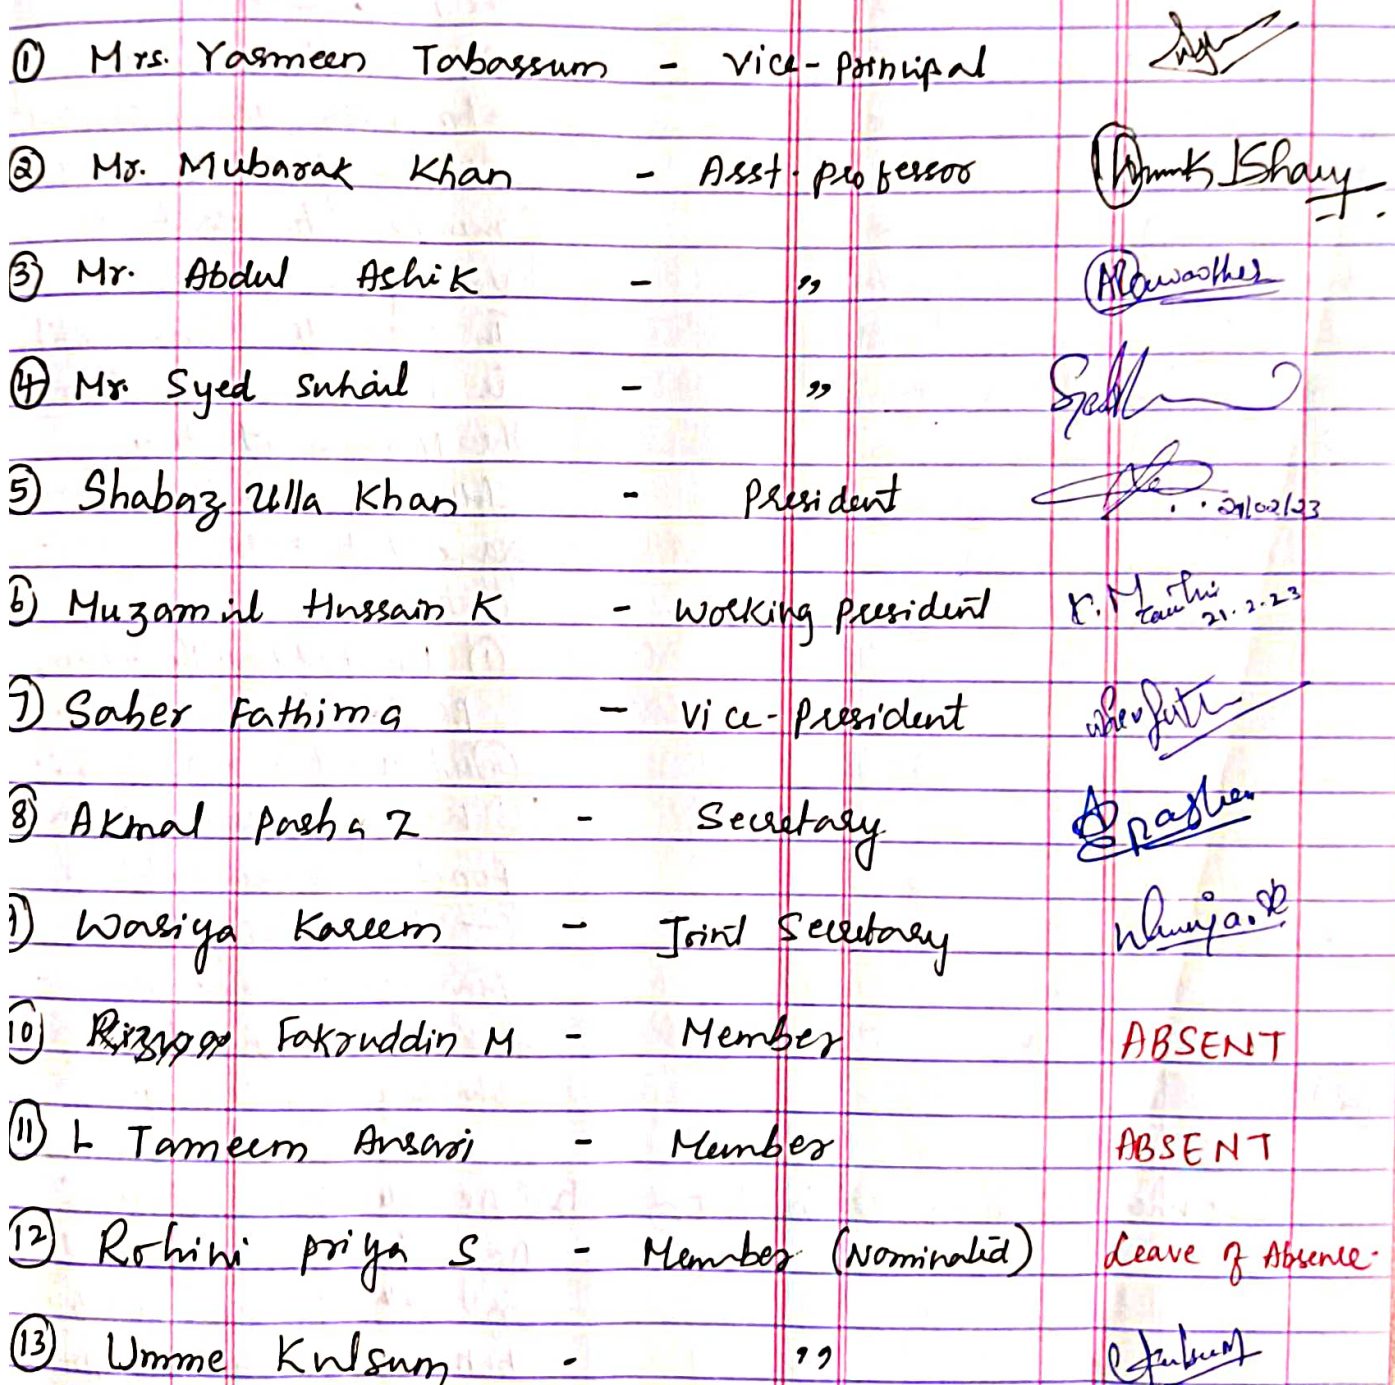 ① Mrs. Yasmeen Tabassum - Vice-Principal
② Mr. Mubarak Khan - Asst. professor
③ Mr. Abdul Ashik - ,,
④ Mr. Syed Suhail - ,,
5) Shabaz Ulla Khan - President 21/02/23
6) Muzamil Hussain K - Working President 21.2.23
7) Saber Fathima - Vice-President
8) Akmal Pasha Z - Secretary Pasha
9) Wasiya Kareem - Joint Secretary
10) Fakruddin M - Member ABSENT
11) L Tameem Ansari - Member ABSENT
12) Rohini priya S - Member (Nominated) Leave of Absence.
13) Umme Kulsum - ,,